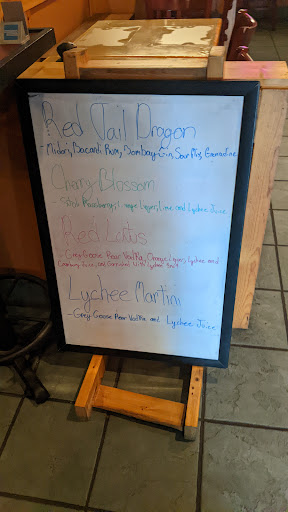 Red Tail Dragon
- Midori, Bacardi Rum, Bombay Gin, Sour Mix, Grenadine
Cherry Blossom
- Stoli Raspberry, Grape Liquer, Lime and Lychee Juice
Red Lotus
- Grey Goose Pear Vodka, Orange Liquer, Lychee and
Cranberry Juice, and Garnished with Lychee Fruit
Lychee Martini
- Grey Goose Pear Vodka and Lychee Juice